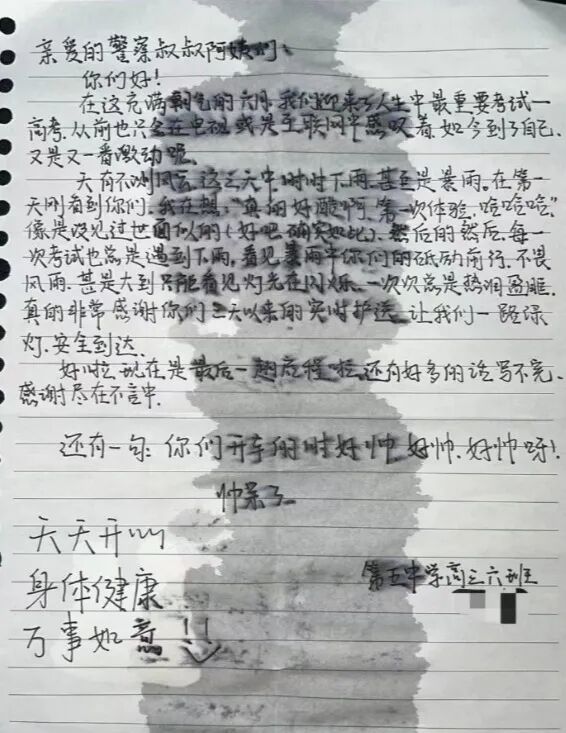 亲爱的警察叔叔阿姨们:
你们好!
在这充满朝气的六月,我们迎来了人生中最重要考试—
高考,从前也只会在电视或是互联网中感叹着,如今到了自己,
又是又一番激动呢。
天有不测风云,这三天中时时下雨,甚至是暴雨。在第一
天刚看到你们,我在想,“真的好酷啊,第一次体验,哈哈哈”,
像是没见过世面似的(好吧确实如此)。然后的然后,每一
次考试也总是遇到下雨,看见暴雨中你们的砥励前行,不畏
风雨,甚是大到只能看见灯光在闪烁,一次次总是热泪盈眶,
真的非常感谢你们三天以来的实时护送,让我们一路绿
灯,安全到达。
好啦,现在是最后一趟应程啦,还有好多的话写不完,
感谢尽在不言中.
还有一句:你们开车的时好帅,好帅,好帅呀!
帅呆了
天天开心
身体健康
第五中学高三六班
万事如意!!